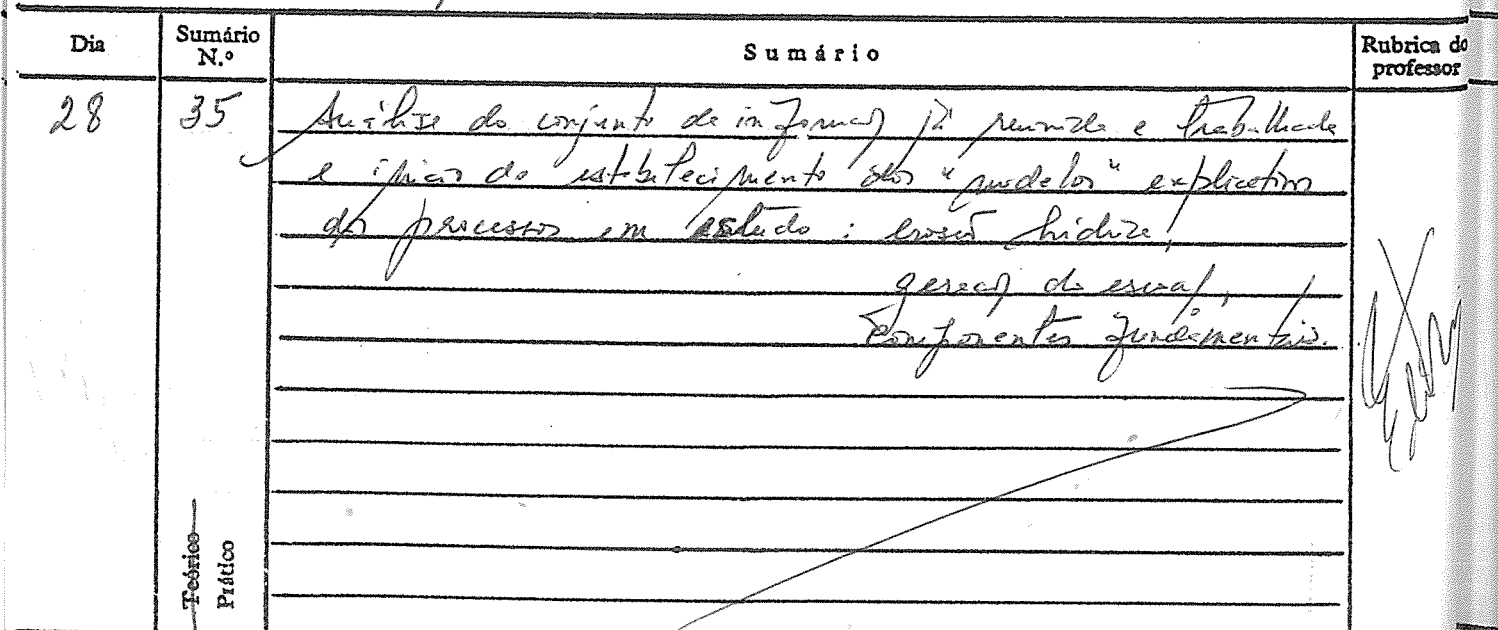 Dia
Sumário N.º
Sumário
Rubrica do professor
28
35
Análise do conjunto de informação já reunida e trabalhada
e início do estabelecimento dos "modelos" explicativos
dos processos em estudo : erosão hídrica,
geração do escoa/,
Componentes fundamentais.
Teórico
Prático